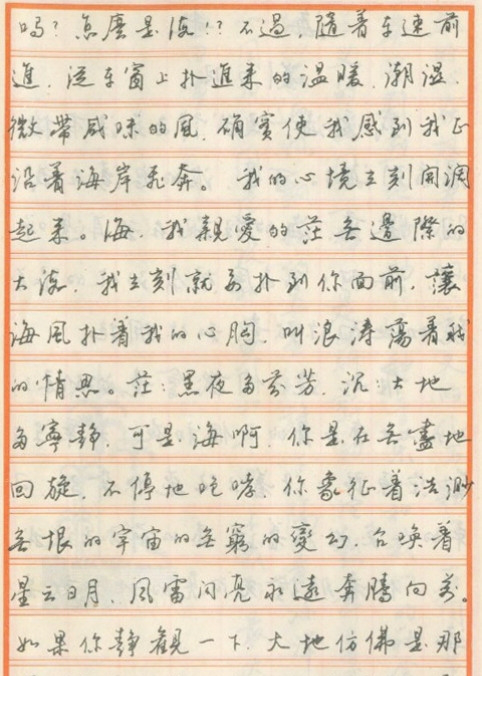 吗？怎麽是海！？不過，隨着车速前
進，從车窗上扑進来的温暖、潮湿、
微带咸味的風，确實使我感到我正
沿着海岸飛奔。我的心境立刻開濶
起来。海，我親愛的茫無邊際的
大海，我立刻就要扑到你面前，讓
海風扑着我的心胸，叫浪涛蕩着我
的情思。茫茫黑夜多芬芳，沉沉大地
多寧静，可是海啊，你是在無盡地
回旋，不停地咆哮，你象征着浩渺
無垠的宇宙的無窮的變幻，召唤着
星云日月、風雷闪亮永遠奔騰向前。
如果你静觀一下，大地仿佛是那